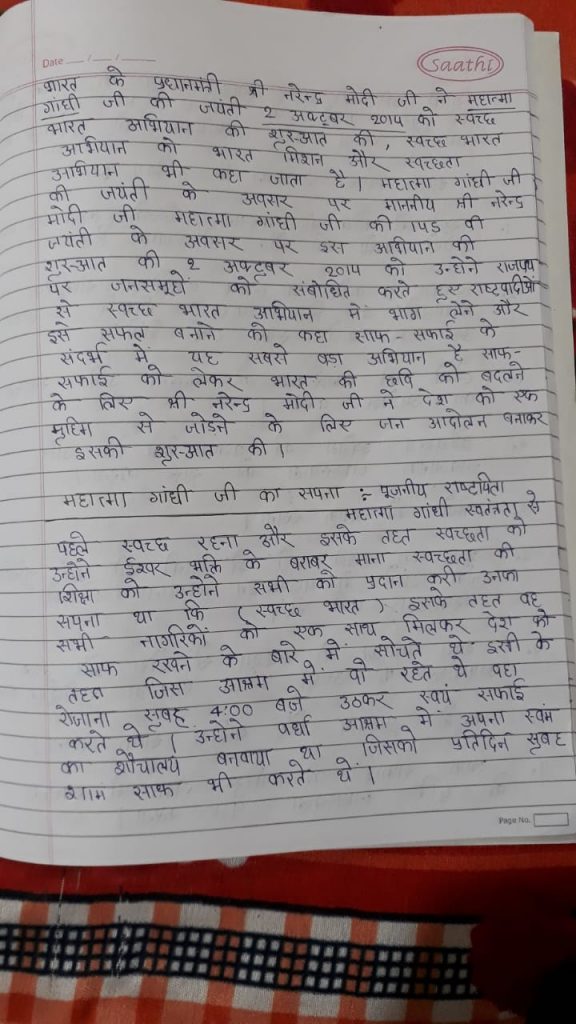 Date __/__/__
saathi
भारत के प्रधानमंत्री श्री नरेन्द्र मोदी जी ने महात्मा
गांधी जी की जयंती 2 अक्टूबर 2014 को स्वच्छ
भारत अभियान की शुरुआत की, स्वच्छ भारत
अभियान को भारत मिशन और स्वच्छता
अभियान भी कहा जाता है। महात्मा गांधी जी
की जयंती के अवसर पर माननीय श्री नरेन्द्र
मोदी जी महात्मा गांधी जी की 145 वी
जयंती के अवसर पर इस अभियान की
शुरुआत की 2 अक्टूबर 2014 को उन्होने राजपथ
पर जनसमूहो को संबोधित करते हुए राष्टवादीओं
से स्वच्छ भारत अभियान में भाग लेने और
इसे सफल बनाने को कहा साफ-सफाई के
संदर्भ में यह सबसे बड़ा अभियान है साफ-
सफाई को लेकर भारत की छवि को बदलने
के लिए श्री नरेन्द्र मोदी जी ने देश को एक
मुहिम से जोड़ने के लिए जन आंदोलन बनाकर
इसकी शुरुआत की।
महात्मा गांधी जी का सपना :- पूजनीय राष्टपिता
महात्मा गांधी स्वतंत्रता से
पहले स्वच्छ रहना और इसके तहत स्वच्छता को
उन्होने ईश्वर भक्ति के बराबर माना स्वच्छता की
शिक्षा को उन्होने सभी को प्रदान करी उनका
सपना था कि (स्वच्छ भारत) इसके तहत वह
सभी नागरिकों को एक साथ मिलकर देश को
साफ रखने के बारे में सोचते थे इसी के
तहत जिस आश्रम में वो रहते थे वहा
रोजाना सुबह 4:00 बजे उठकर स्वयं सफाई
करते थे। उन्होने वर्धा आश्रम मे अपना स्वमं
का शौचालय बनवाया था जिसको प्रतिदिन सुबह
शाम साफ भी करते थे।
Page No.